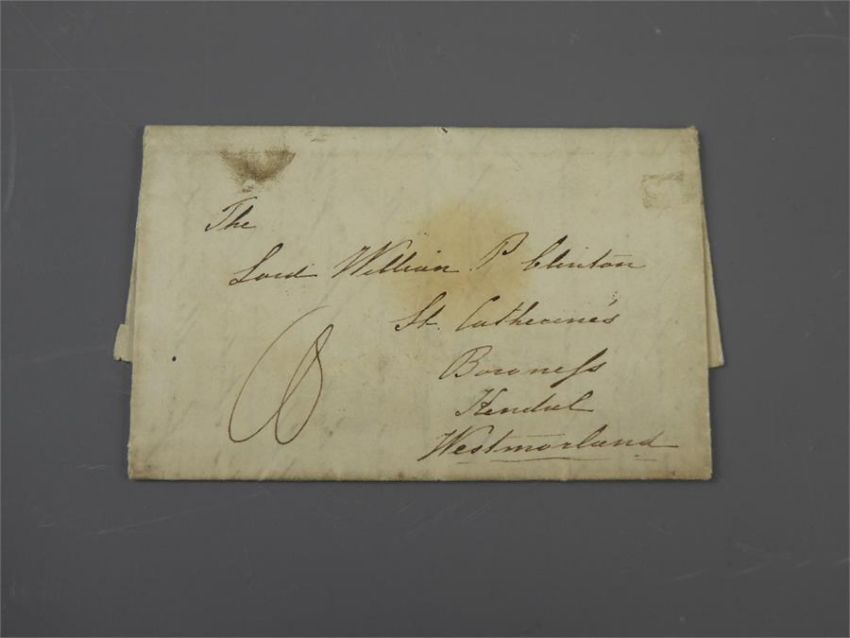 The
Lord William P Clinton
St. Catherine's
Bowness
Kendal
Westmorland